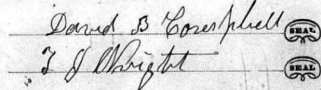 David B Campbell SEAL
T J Wright SEAL